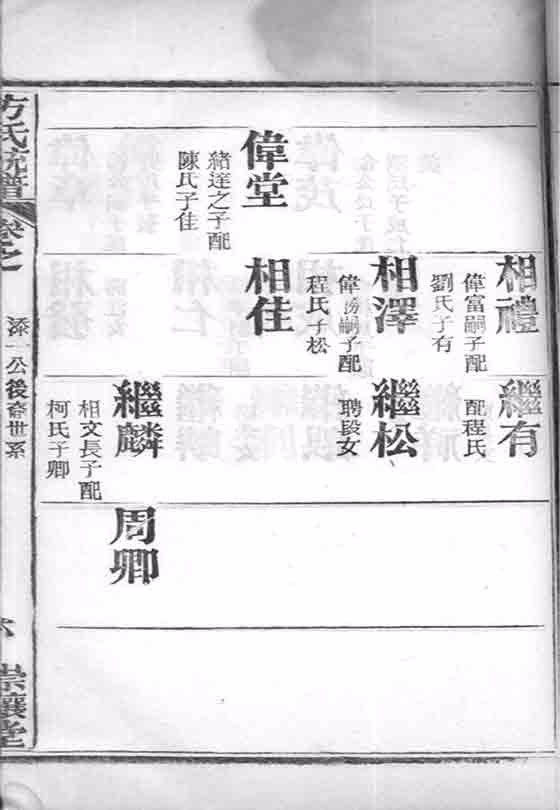 相禮
偉富嗣子配
劉氏子有
繼有
配程氏
相澤
嗣子配
程氏子松
繼松
聘段女
偉堂
緒達之子配
陳氏子佳
相佳
繼麟
相文長子配
柯氏子卿
周卿
方氏統譜
卷之
添一公後裔世系
六
崇讓堂